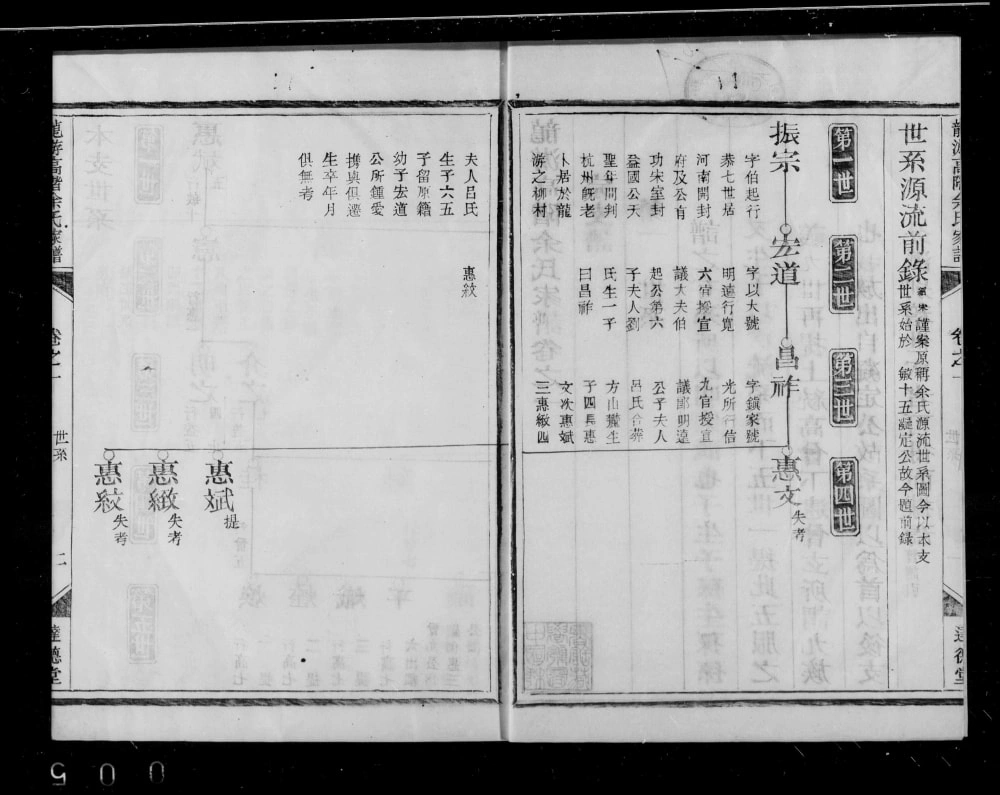 世系源流前錄
謹案原稱余氏源流世系圖今以本支
世系始於敏十五諟定公故今題前錄
第一世
第二世
第三世
第四世
振宗
宏道
昌祚
惠文 失考
字伯起行
恭七世居
河南開封
府及公有
功宋室封
益國公天
聖年間判
杭州既老
卜居於龍
游之柳村
字以大號
明遠行寬
六官授宣
議大夫伯
起公第六
子夫人劉
氏生一子
曰昌祚
字鎮家號
光所行信
九官授宣
議郎明遠
公子夫人
呂氏合葬
方山麓生
子四長惠
文次惠斌
三惠緻四
惠紋
夫人呂氏
生子六五
子留原籍
幼子宏道
公所鍾愛
擕與俱遷
生卒年月
俱無考
惠斌 提
惠緻 失考
惠紋 失考
龍游高階余氏家譜
卷之一
世系
二
達德堂
005